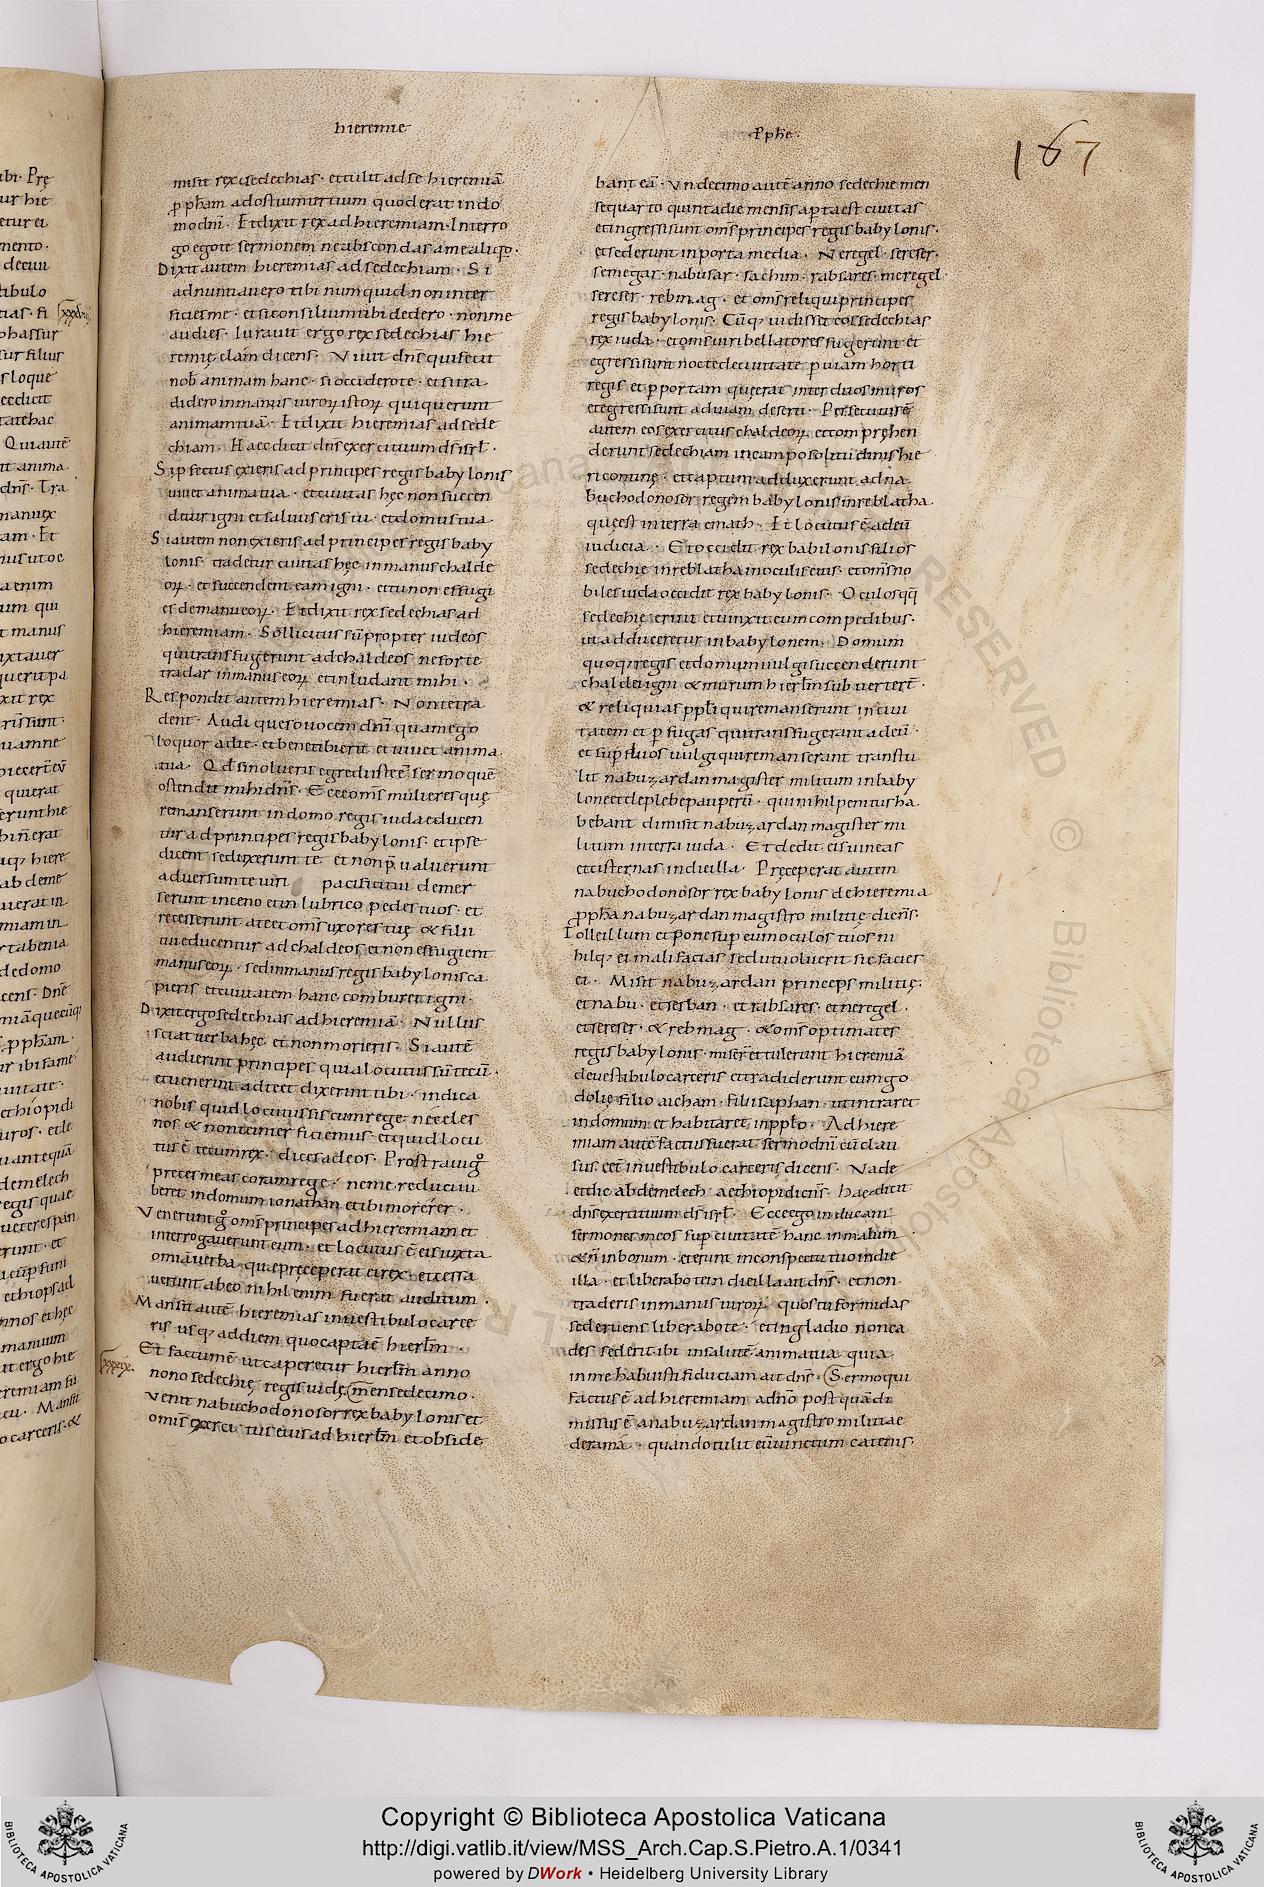 hieremie
misit rex sedechias · et tulit ad se hieremiā
ꝓph̄am ad ostium tertium quod erat in do
mo dn̄i · Et dixit rex ad hieremiam · Interro
go ego te sermonem ne abscondas a me aliqͦ ·
Dixit autem hieremias ad sedechiam · Si
adnuntiavero tibi numquid non inter
ficies me · et si consilium tibi dedero · non me
audies · Iuravit ergo rex sedechias hie
remię clam dicens · Vivit dn̄s qui fecit
nob̄ animam hanc · si occidero te · et si tra
didero in manus viroꝝ istoꝝ qui querunt
animam tuā · Et dixit hieremias ad sede
chiam · Haec dicit dn̄s exercituum ds̄ isrł ·
Si ꝓfectus exieris ad principes regis babylonis
vivet anima tua · et civitas hęc non succen
detur igni et salvus eris tu · et domus tua ·
Si autem non exieris ad principes regis baby
lonis · tradetur civitas hęc in manus chalde
oꝝ · et succendent eam igni · et tu non effugi
es de manu eoꝝ · Et dixit rex sedechias ad
hieremiam · Sollicitus sū propter iudeos
qui transfugerunt ad chaldeos ne forte
tradar in manus eoꝝ et inludant mihi ·
Respondit autem hieremias · Non te tra
dent · Audi queso vocem dn̄i quam ego
loquor ad te · et bene tibi erit et vivet anima
tua · Qd si nolueris egredi iste ē sermo quē
ostendit mihi dn̄s · Ecce om̄s mulieres quę
remanserunt in domo regis iuda educen
tur ad principes regis babylonis · et ipse
dicent seduxerunt te et non p̄valuerunt
adversum te viri pacifici tui demer
serunt in ceno et in lubrico pedes tuos · et
recesserunt a te et om̄s uxores tuę & filii
tui educentur ad chaldeos et non effugient
manus eoꝝ · sed in manus regis babylonis ca
pieris et civitatem hanc comburet igni ·
Dixit ergo sedechias ad hieremiā · Nullus
sciat verba hęc et non morieris · Si autē
audierint principes quia locutus sū tecū ·
et venerint ad te et dixerint tibi · indica
nobis quid locutus sis cum rege ne celes
nos & non te interficiemus · et quid locu
tus ē tecum rex · dices ad eos · Prostravi gͦ
preces meas coram rege · ne me reduci iu
beret in domum ionathan et ibi morerer ·
Venerunt gͦ om̄s principes ad hieremiam et
interrogaverunt eum · et locutus ē eis iuxta
omnia verba quę pręceperat ei rex · et cessa
verunt ab eo nihil enim fuerat auditum ·
Mansit autē hieremias in vestibulo carce
ris usqꝫ ad diem quo capta ē hierl̄m ·
xxxix ·
Et factum ē ut caperetur hierl̄m anno
nono sedechię regis iudę mense decimo ·
Venit nabuchodonosor rex babylonis et
omis exercitus eius ad hierl̄m et obside
Pph̄e ·
167
bant eā · Undecimo autē anno sedechie men
se quarto quinta die mensis aperta est civitas
et ingressi sunt om̄s principes regis babylonis ·
et sederunt in porta media · Neregel · sereser ·
semegar · nabusar · sachim · rabsares · meregel ·
sereser · rebmag · et om̄s reliqui principes
regis babylonis · Cūqꝫ vidisset eos sedechias
rex iuda · et om̄s viri bellatores fugerunt et
egressi sunt nocte de civitate ꝑ viam horti
regis et ꝑ portam quę erat inter duos muros
et egressi sunt ad viam deserti · Persecutus ē
autem eos exercitus chaldeoꝝ et comprehen
derunt sedechiam in campo solitudinis hie
ricontinę · et captum adduxerunt ad na
buchodonosor regem babylonis in reblatha
quę est in terra emath · Et locutus ē ad eū
iudicia · Et occidit rex babilonis filios
sedechię in reblatha in oculis eius · et om̄s no
biles iuda occidit rex babylonis · Oculos qq̄
sedechię eruit et vinxit eum compedibus ·
ut adduceretur in babylonem · Domum
quoqꝫ regis et domum vulgi succenderunt
chaldei igni & murum hierl̄m subverterꝫ ·
& reliquias ppl̄i qui remanserunt in civi
tatem et ꝑfugas qui transfugerant ad eū ·
et suꝑfluos vulgi qui remanserant transtu
lit nabuzardan magister militum in baby
lone et de plebe pauperū · qui nihil penitus ha
bebant dimisit nabuzardan magister mi
litum in terra iuda · Et dedit eis vineas
et cisternas in die illa · Pręceperat autem
nabuchodonosor rex babylonis de hieremia
ꝓph̄a nabuzardan magistro militię dicens ·
Tolle illum et pone suꝑ eum oculos tuos ni
hilqꝫ ei mali facias sed ut voluerit sic facies
ei · Misit nabuzardan princeps militię ·
et nabu · et sesban · et rabsares · et neregel ·
et sereser · & rebmag · & om̄s optimates
regis babylonis · miserꝫ et tulerunt hieremiā
de vestibulo carceris et tradiderunt eum go
dolię filio aicham · filii saphan · ut intraret
in domum et habitaret in ppl̄o · Ad hiere
miam autē factus fuerat sermo dn̄i cū clau
sus eēt in vestibulo carceris dicens · Vade
et dic abdemelech aethiopi dicens · haec dicit
dn̄s exercituum ds̄ isrł · Ecce ego inducam
sermones meos suꝑ civitatē hanc in malum
& n̄ in bonum · et erunt in conspectu tuo in die
illa · et liberabo te in die illa ait dn̄s · et non
traderis in manus viroꝝ quos tu formidas
sed eruens liberabo te · et in gladio non ca
des sed erit tibi in salutē anima tua quia
in me habuisti fiduciam ait dn̄s · Sermo qui
factus ē ad hieremiam a dn̄o postquā di
missus ē a nabuzardan magistro militiae
de rama · quando tulit eū vinctum catenis ·
Copyright © Biblioteca Apostolica Vaticana
http://digi.vatlib.it/view/MSS_Arch.Cap.S.Pietro.A.1/0341
powered by DWork • Heidelberg University Library